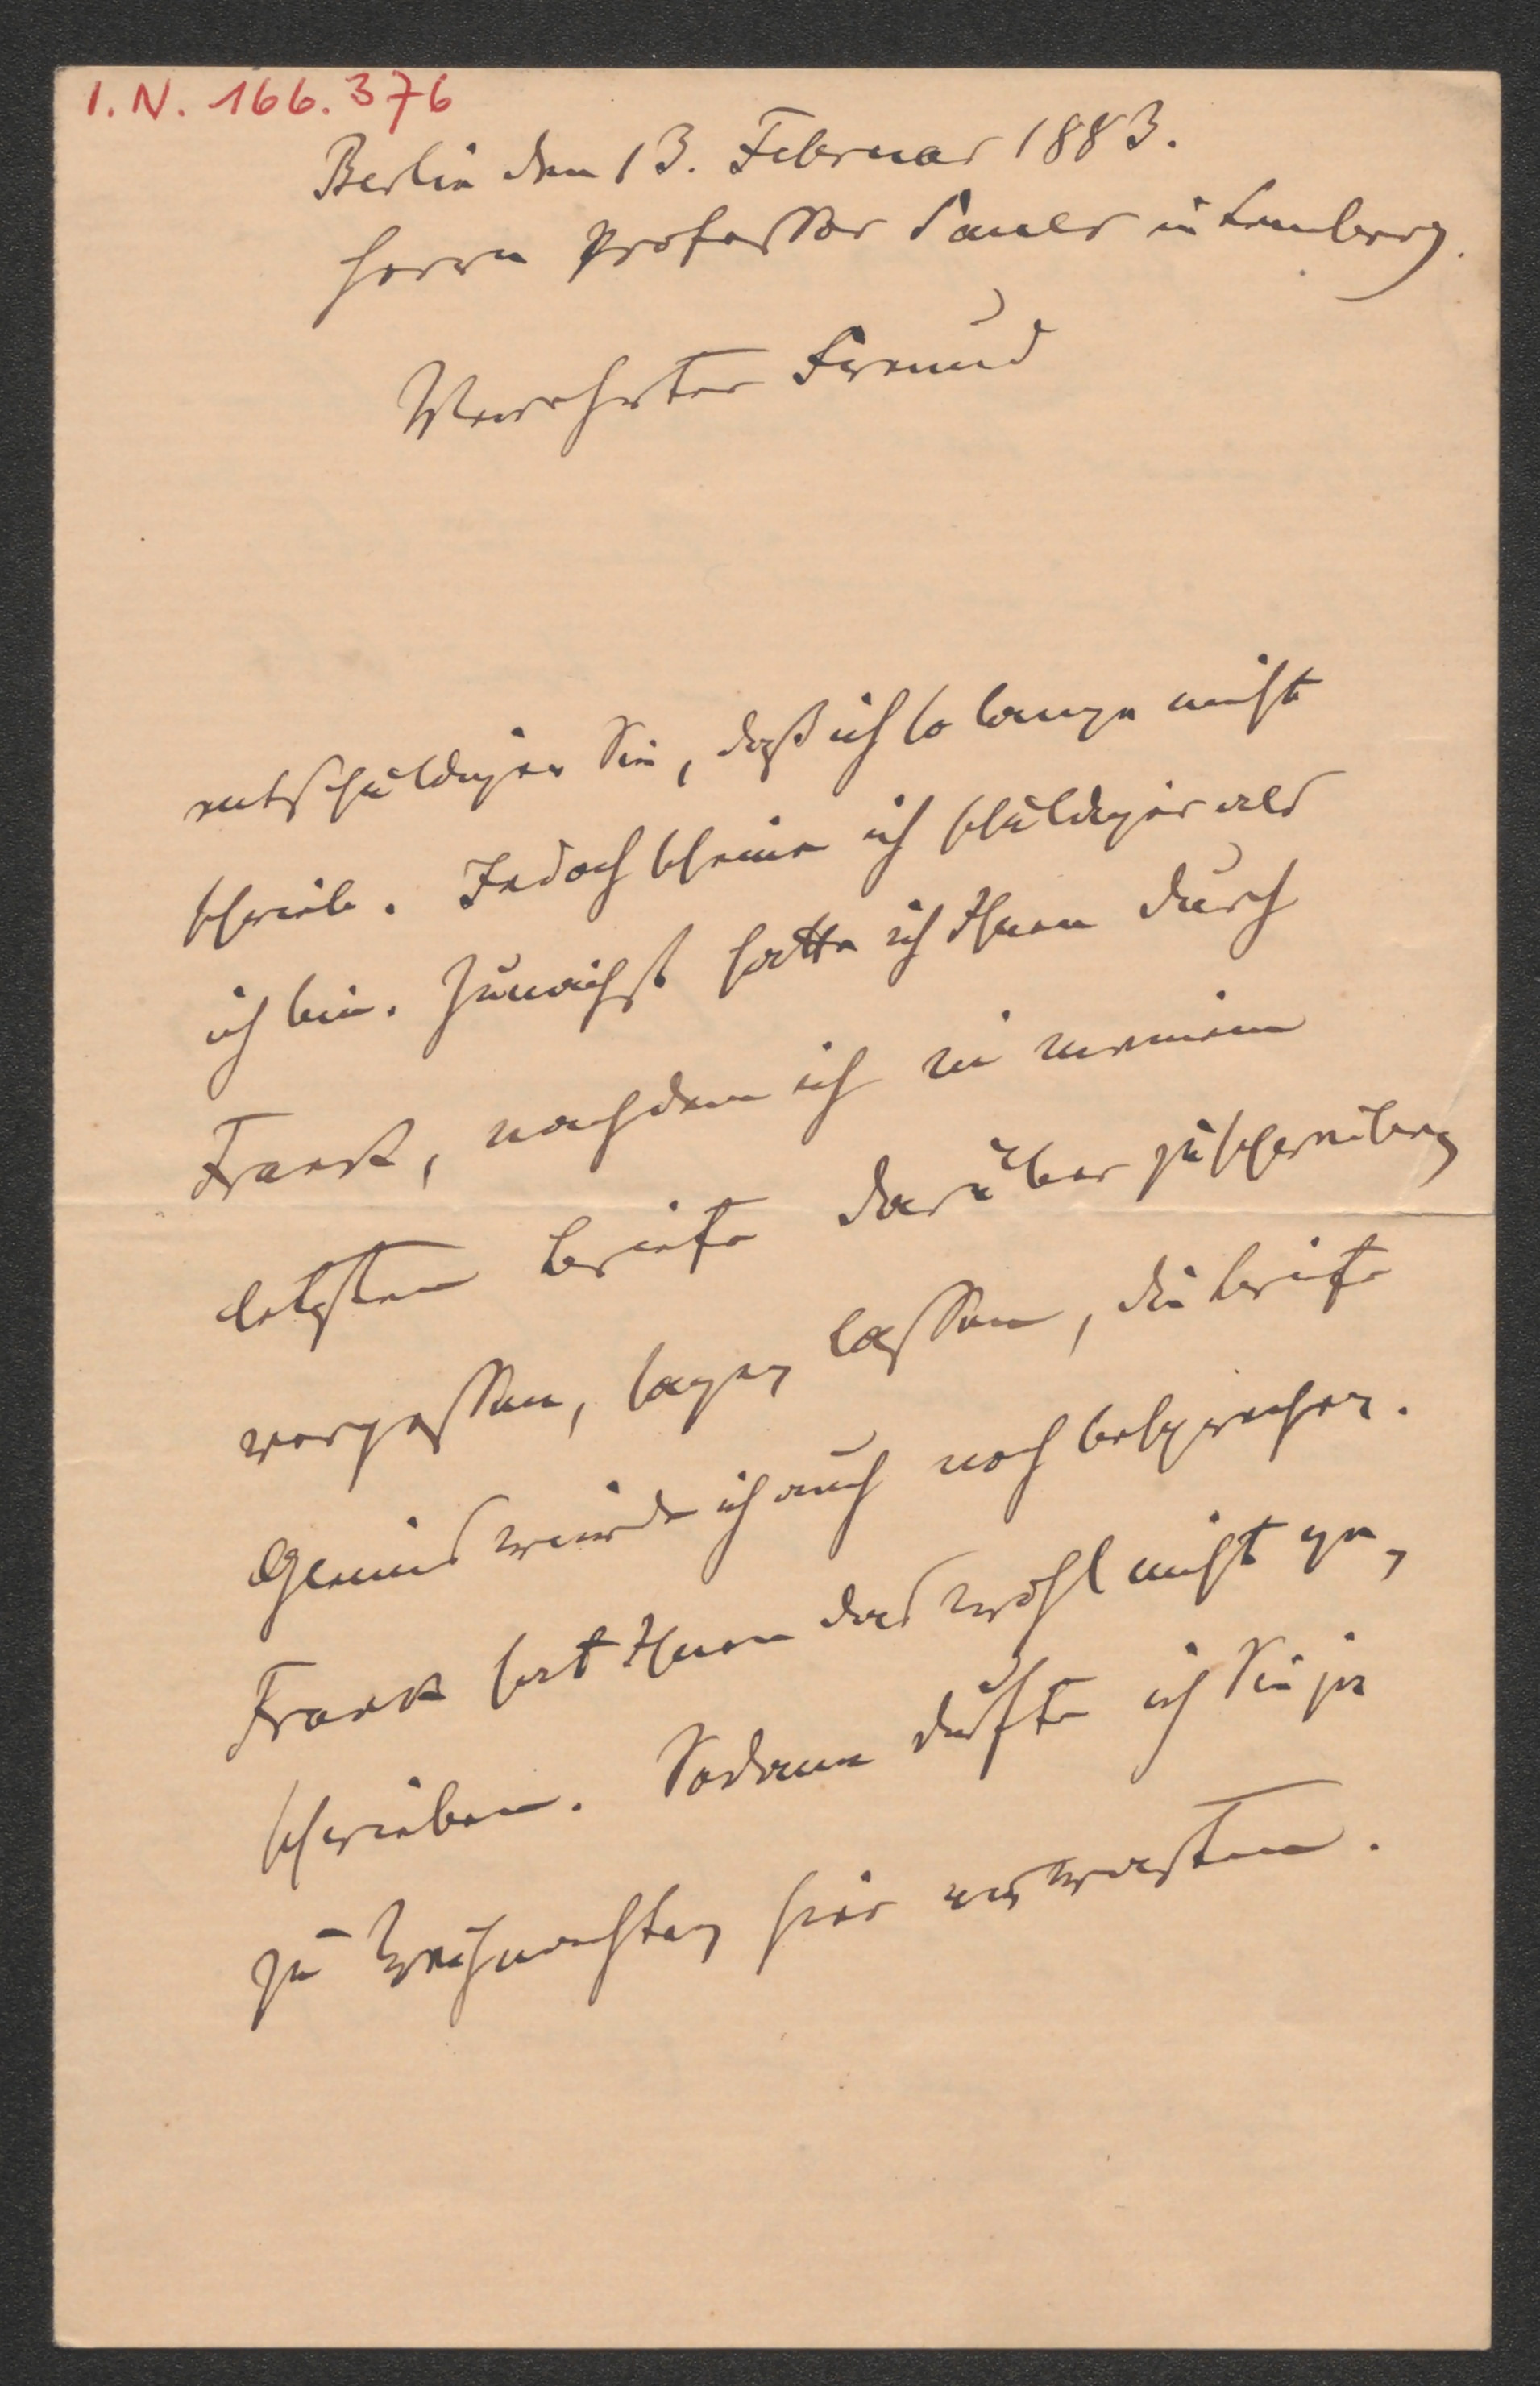 I. N. 166.376
Berlin den 13. Februar 1883.
Herrn Professor Sauer in Lemberg.
Verehrter Freund
entschuldigen Sie, daß ich so lange nicht
schrieb. Jedoch scheine ich schuldiger als
ich bin. Zunächst hatte ich Ihnen durch
Franck, nachdem ich in meinem
letzten Briefe darüber zu schreiben
vergessen, sagen lassen, die Briefe
Gleims würde ich auch noch besprechen.
Franck hat Ihnen das wohl nicht ge-
schrieben. Sodann durfte ich Sie ja
zu Weihnachten hier erwarten.